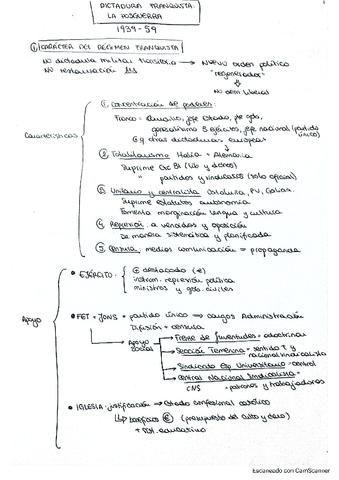 DICTADURA FRANQUISTA:
LA POSGUERRA
1939-59
① CARÁCTER DEL RÉGIMEN FRANQUISTA
No dictadura militar transitoria → NUEVO orden político
No restauración "regenerador"
No dem liberal
Características
① Concentración de poderes:
Franco = Caudillo, jefe Estado, pte gob,
generalísimo 3 ejércitos, jefe nacional (partido único)
② Totalitarismo Italia + Alemania
Suprime (lib y dchos)
" partidos y sindicatos (solo oficial)
③ Unitario y centralista. Cataluña, PV, Galicia.
Suprime estatutos autonomía
Fomenta marginación lengua y cultura
④ Represivo: a vencidos y oposición
De manera sistemática y planificada
⑤ Censura: medios comunicación = propaganda
Apoyo
• EJÉRCITO: destacado
instrum. represión política
ministros y gob. civiles
• FET + JONS = partido único → cargos Administración
Difusión + censura
Apoyo social
→ Frente de Juventudes = adoctrinar
→ Sección Femenina = sentido T y
nacionalsindicalista
→ Sindicato Esp Universitario = control
→ Central Nacional Sindicalista =
CNS = patronos y trabajadores
• IGLESIA: justificación → Estado confesional católico
beneficios € (presupuesto del culto y clero)
+ educativo
Escaneado con CamScanner